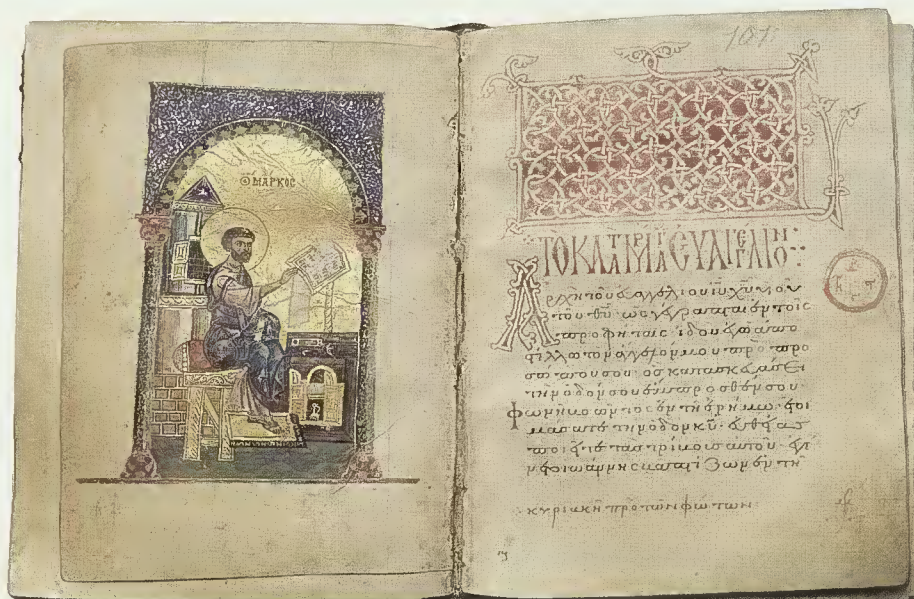 ΜΑΡΚΟΣ
101
ΤΟ ΚΑΤΑ ΜΑΡΚΟΝ ΕΥΑΓΓΕΛΙΟΝ
Ἀρχὴ τοῦ εὐαγγελίου ἰυ χυ υἱοῦ
τοῦ θυ· ὡς γέγραπται ἐν τοῖς
προφήταις· ἰδοὺ ἐγὼ ἀπο
στέλλω τὸν ἄγγελόν μου πρὸ προ
σώπου σου· ὃς κατασκευάσει
τὴν ὁδόν σου ἔμπροσθέν σου·
φωνὴ βοῶντος ἐν τῇ ἐρήμω· ἑτοι
μάσατε τὴν ὁδὸν κυ· εὐθείας
ποιεῖτε τὰς τρίβους αὐτοῦ· ἐγέ
νετο ἰωάννης βαπτίζων ἐν τῇ
κυριακῇ πρὸ τῶν φώτων